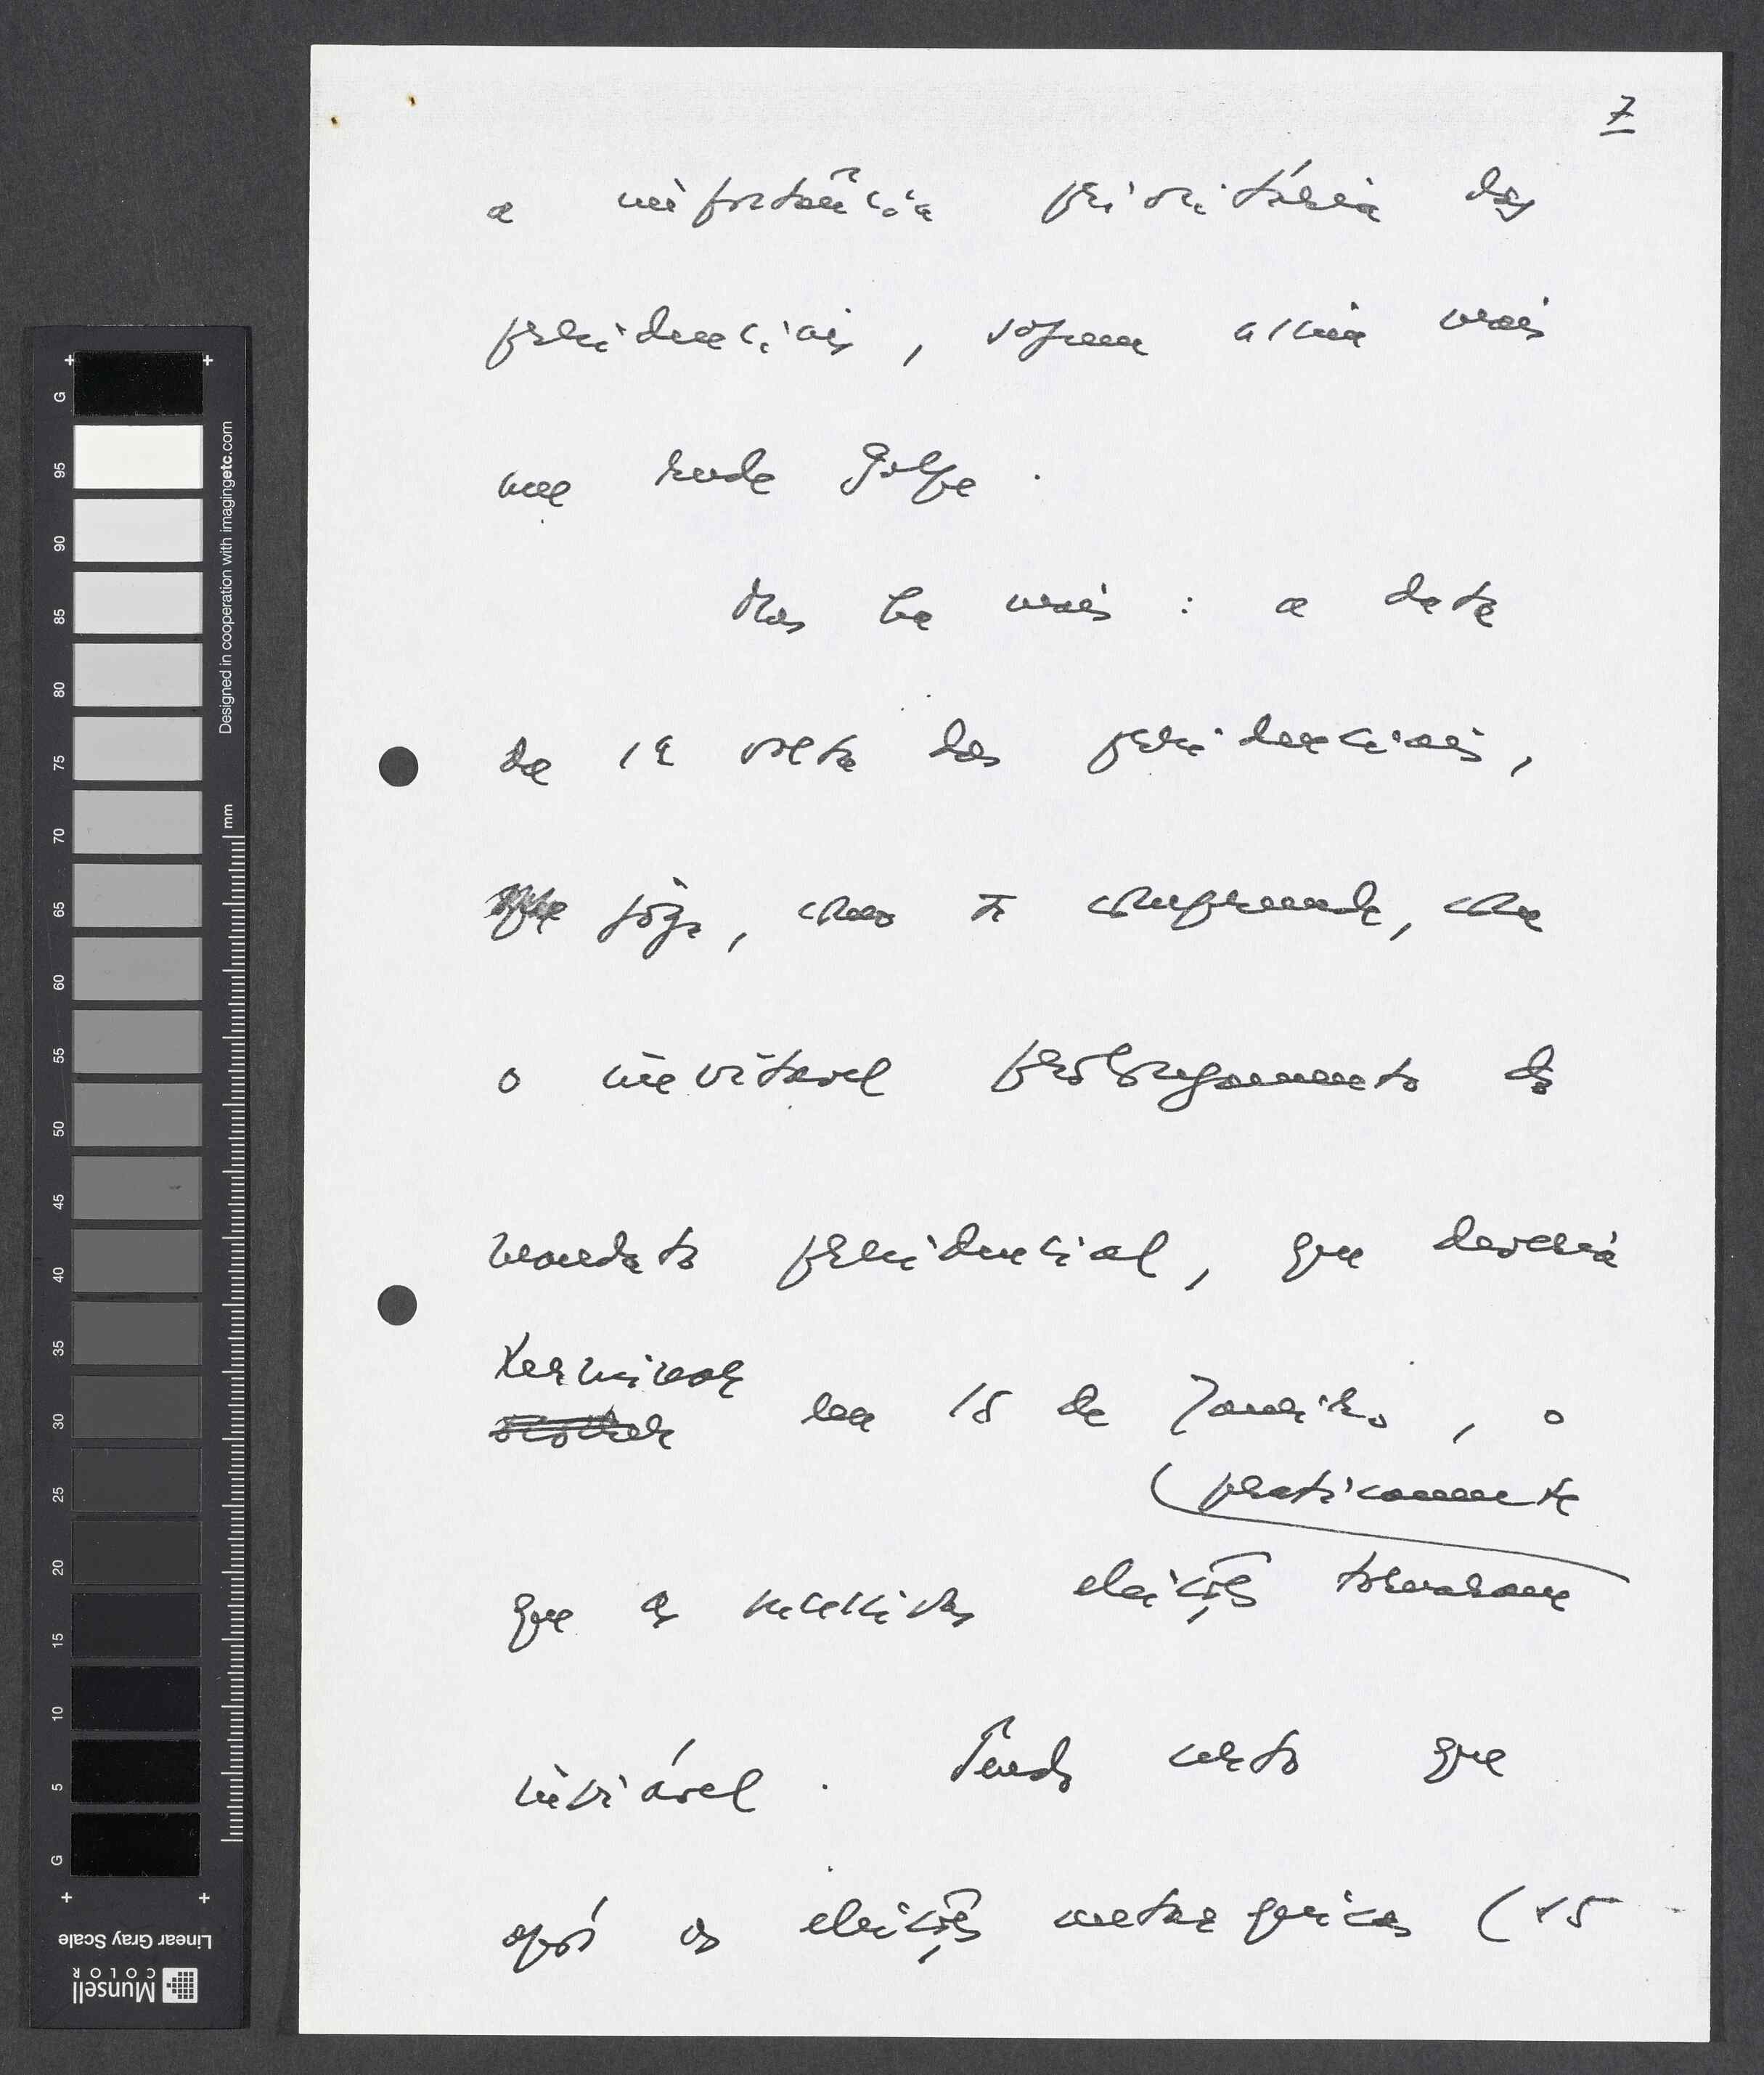 7
a importância prioritária das
presidenciais, sofreu assim mais
um rude golpe.
Mas há mais: a data
da 1ª volta das presidenciais,
joga, como se compreende, com
o inevitável prolongamento do
mandato presidencial, que deveria
terminar em 15 de Janeiro, o
(praticamente
que as sucessivas eleições tornaram
inviável. Tendo certo que
após as eleições autárquicas (15
G
95
90
85
80
75
70
65
60
55
50
45
40
35
30
25
20
15
10
5
G
mm
Designed in cooperation with imagingetc.com
Munsell
COLOR
Linear Gray Scale